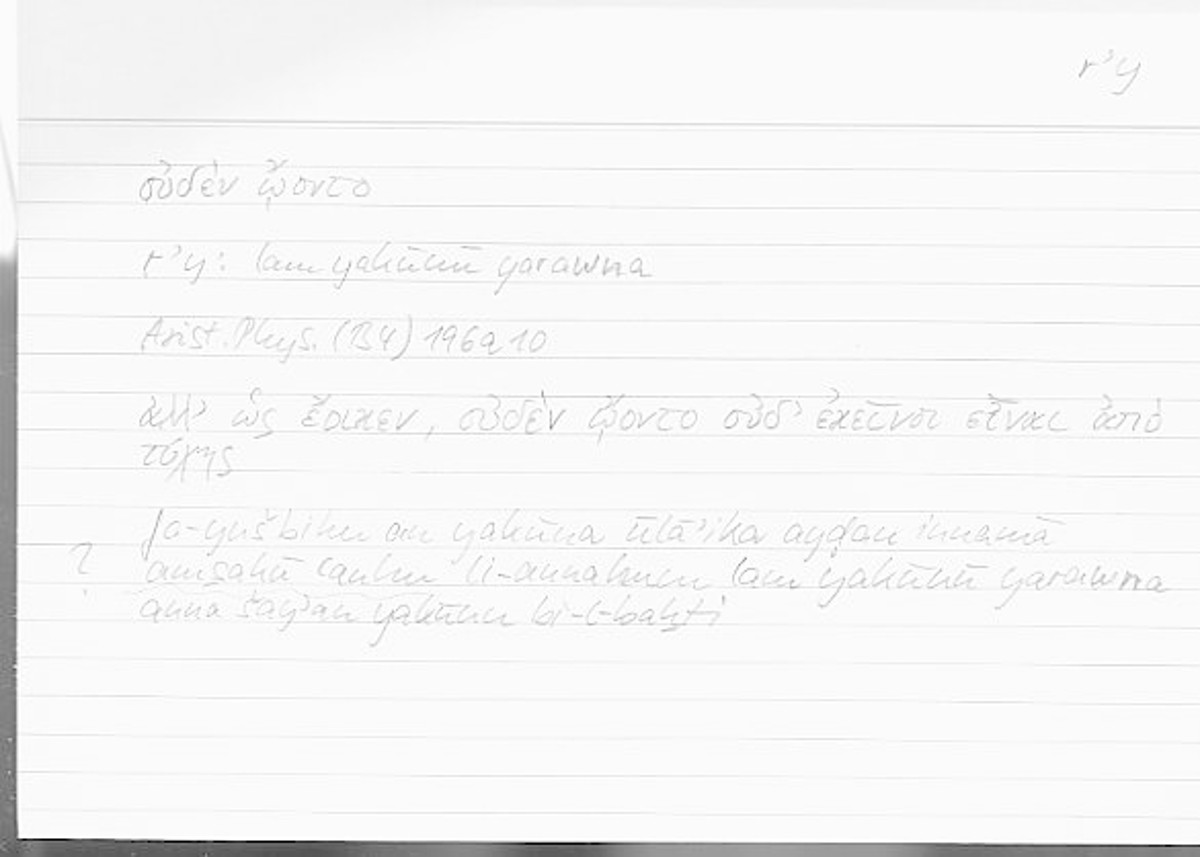 r'y
οὐδὲν ᾤοντο
r'y: lam yakūnū yarawna
Arist. Phys. (B4) 196a10
ἀλλ' ὡς ἔοικεν, οὐδὲν ᾤοντο οὐδ' ἐκεῖνοι εἶναι ἀπὸ
τύχης
fa-yušbihu an yakūna ūlā'ika ayḍan innamā
? amsakū ʿanhu li-annahum lam yakūnū yarawna
anna šay'an yakūnu bi-l-baḫti